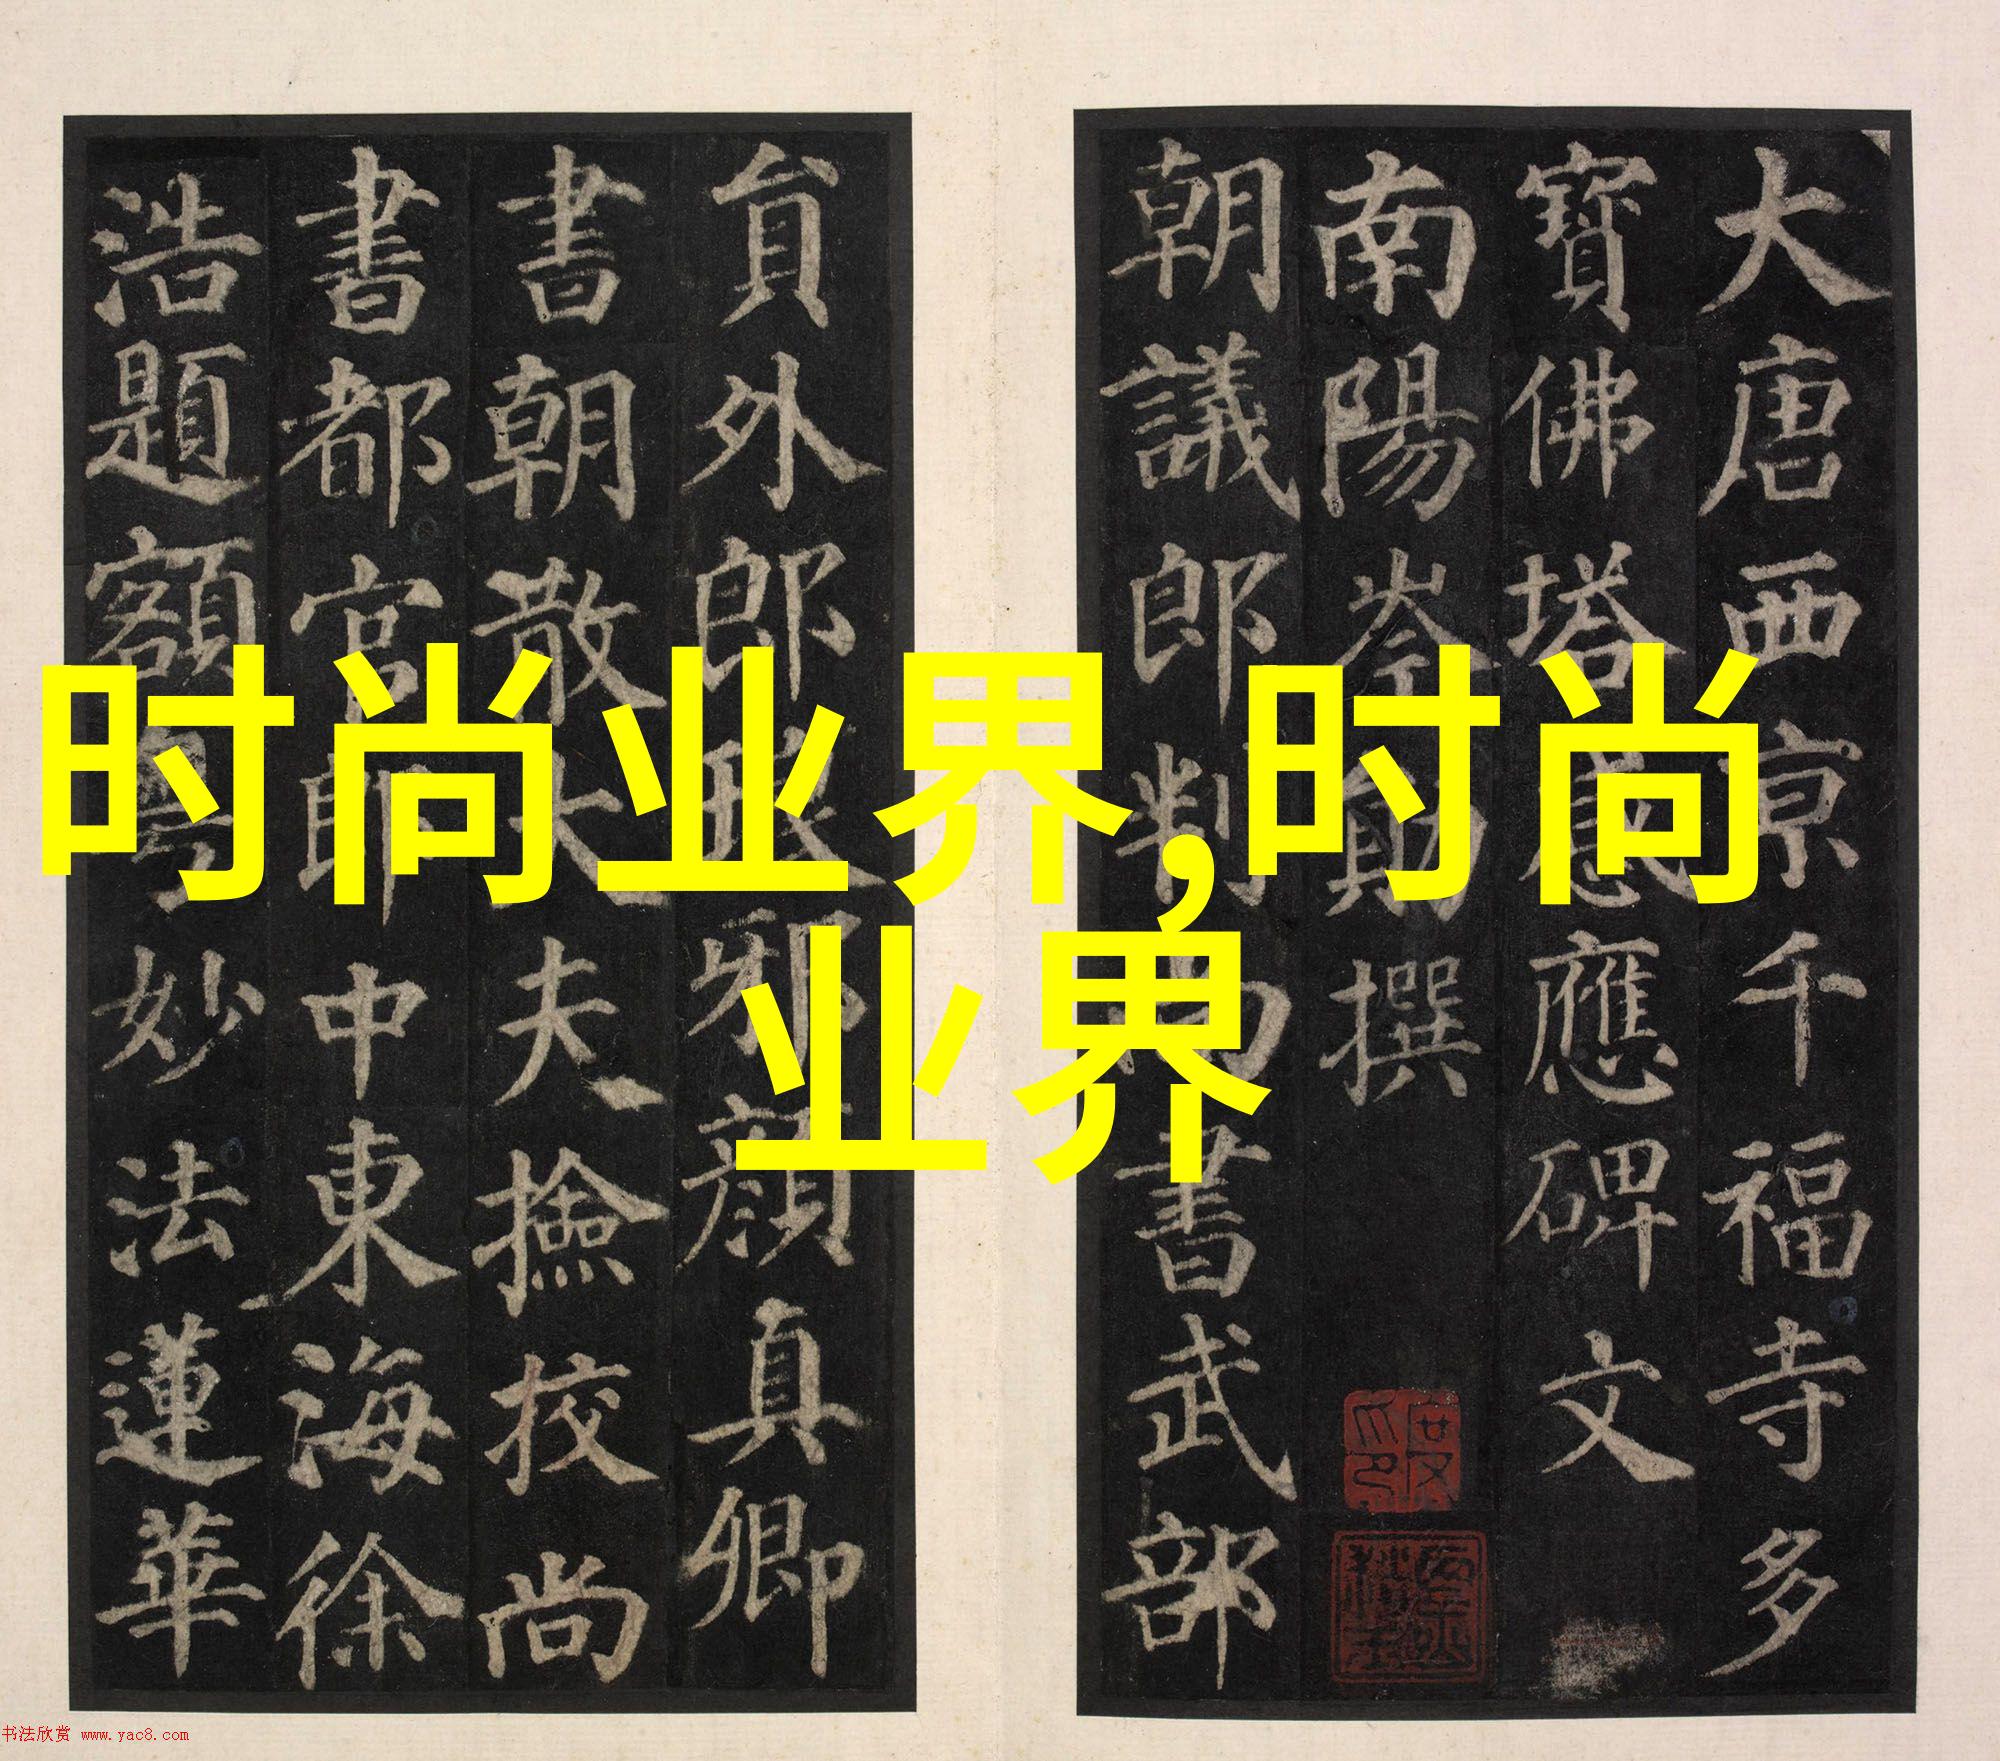 时尚业界,时尚
业界
大唐西京千福寺多
寶佛塔感應碑文
南陽岑勛撰
朝議郎判尚書武部
貟外郎琅邪顏真卿
書朝散大夫撿挍尚
書都官郎中東海徐
浩題額粵妙法蓮華
书法欣赏 www.yac8.com